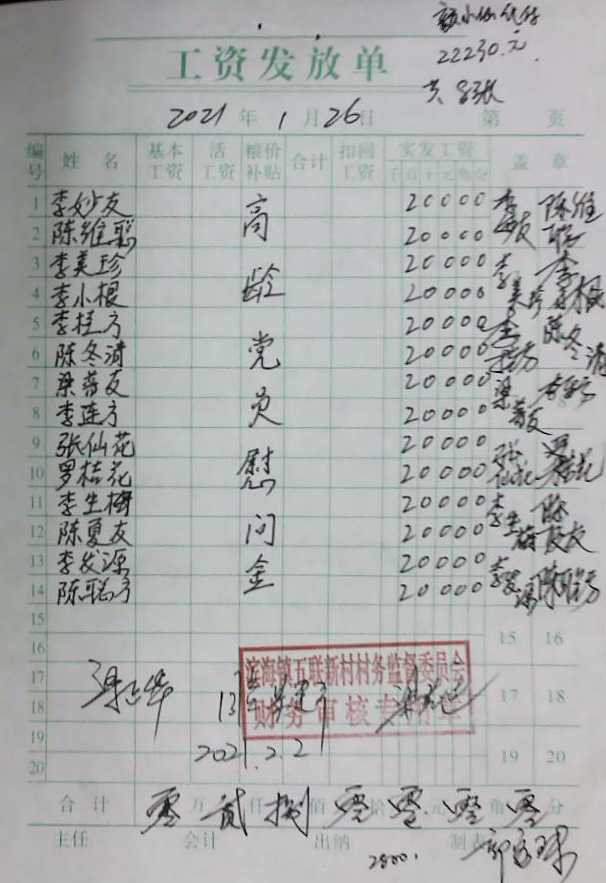 22230.元
共 8张
工资发放单
2021 年 1 月 26 日 第 页
编号 姓 名 基本工资 活工资 粮价补贴 合计 扣闸工资 实发工资 千百十元角分 盖 章
1 李妙友 20000
2 陈维聪 20000 陈维聪
3 李美珍 20000 李美珍
4 李小根 20000
5 李桂方 20000
6 陈冬清 20000 陈冬清
7 梁蓉友 20000
8 李连方 20000
9 张仙花 20000 张仙花
10 罗桔花 20000
11 李生梅 20000
12 陈夏友 20000 陈夏友
13 李发源 20000
14 陈聪方 20000
高龄党员慰问金
15 15 16
16
17 17 18
18
19 19 20
20
滨海镇五联新村村务监督委员会
财务审核专用章
2021.2.2
合 计 零 万 贰 仟 捌 佰 零 拾 零 元 零 角 零 分
主任 会计 出纳 制表
2800.